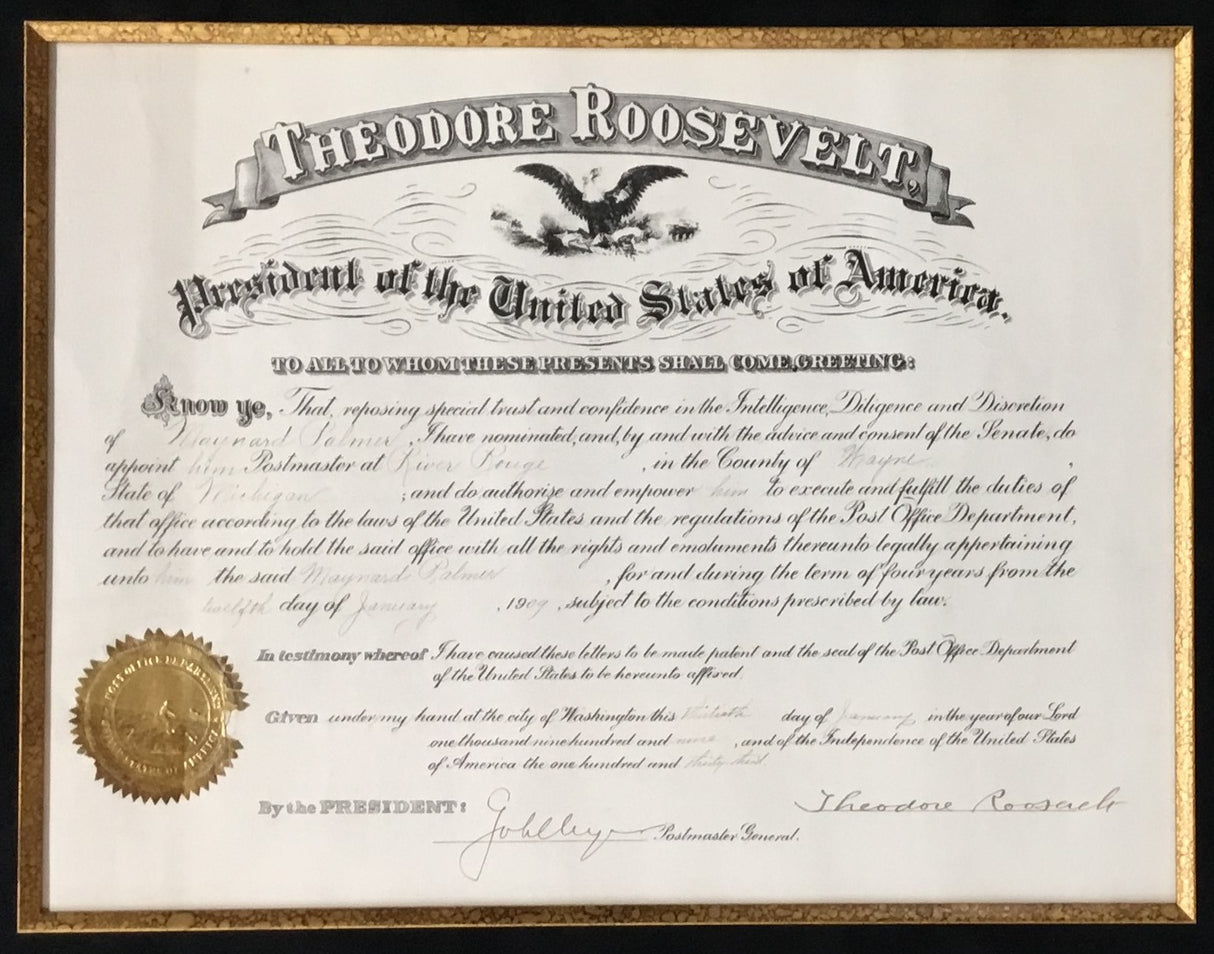 THEODORE ROOSEVELT,
President of the United States of America.
TO ALL TO WHOM THESE PRESENTS SHALL COME, GREETING:
Know ye, That, reposing special trust and confidence in the Intelligence, Diligence and Discretion
of Maynard Palmer, I have nominated, and, by and with the advice and consent of the Senate, do
appoint him Postmaster at River Rouge, in the County of Wayne,
State of Michigan; and do authorize and empower him to execute and fulfill the duties of
that office according to the laws of the United States and the regulations of the Post Office Department,
and to have and to hold the said office with all the rights and emoluments thereunto legally appertaining
unto him the said Maynard Palmer, for and during the term of four years from the
twelfth day of January, 1909, subject to the conditions prescribed by law.
POST OFFICE DEPARTMENT
UNITED STATES OF AMERICA
In testimony whereof I have caused these letters to be made patent and the seal of the Post Office Department
of the United States to be hereunto affixed.
Given under my hand at the city of Washington this day of January in the year of our Lord
one thousand nine hundred and nine, and of the Independence of the United States
of America the one hundred and thirty-third.
By the PRESIDENT:
Theodore Roosevelt
Postmaster General.